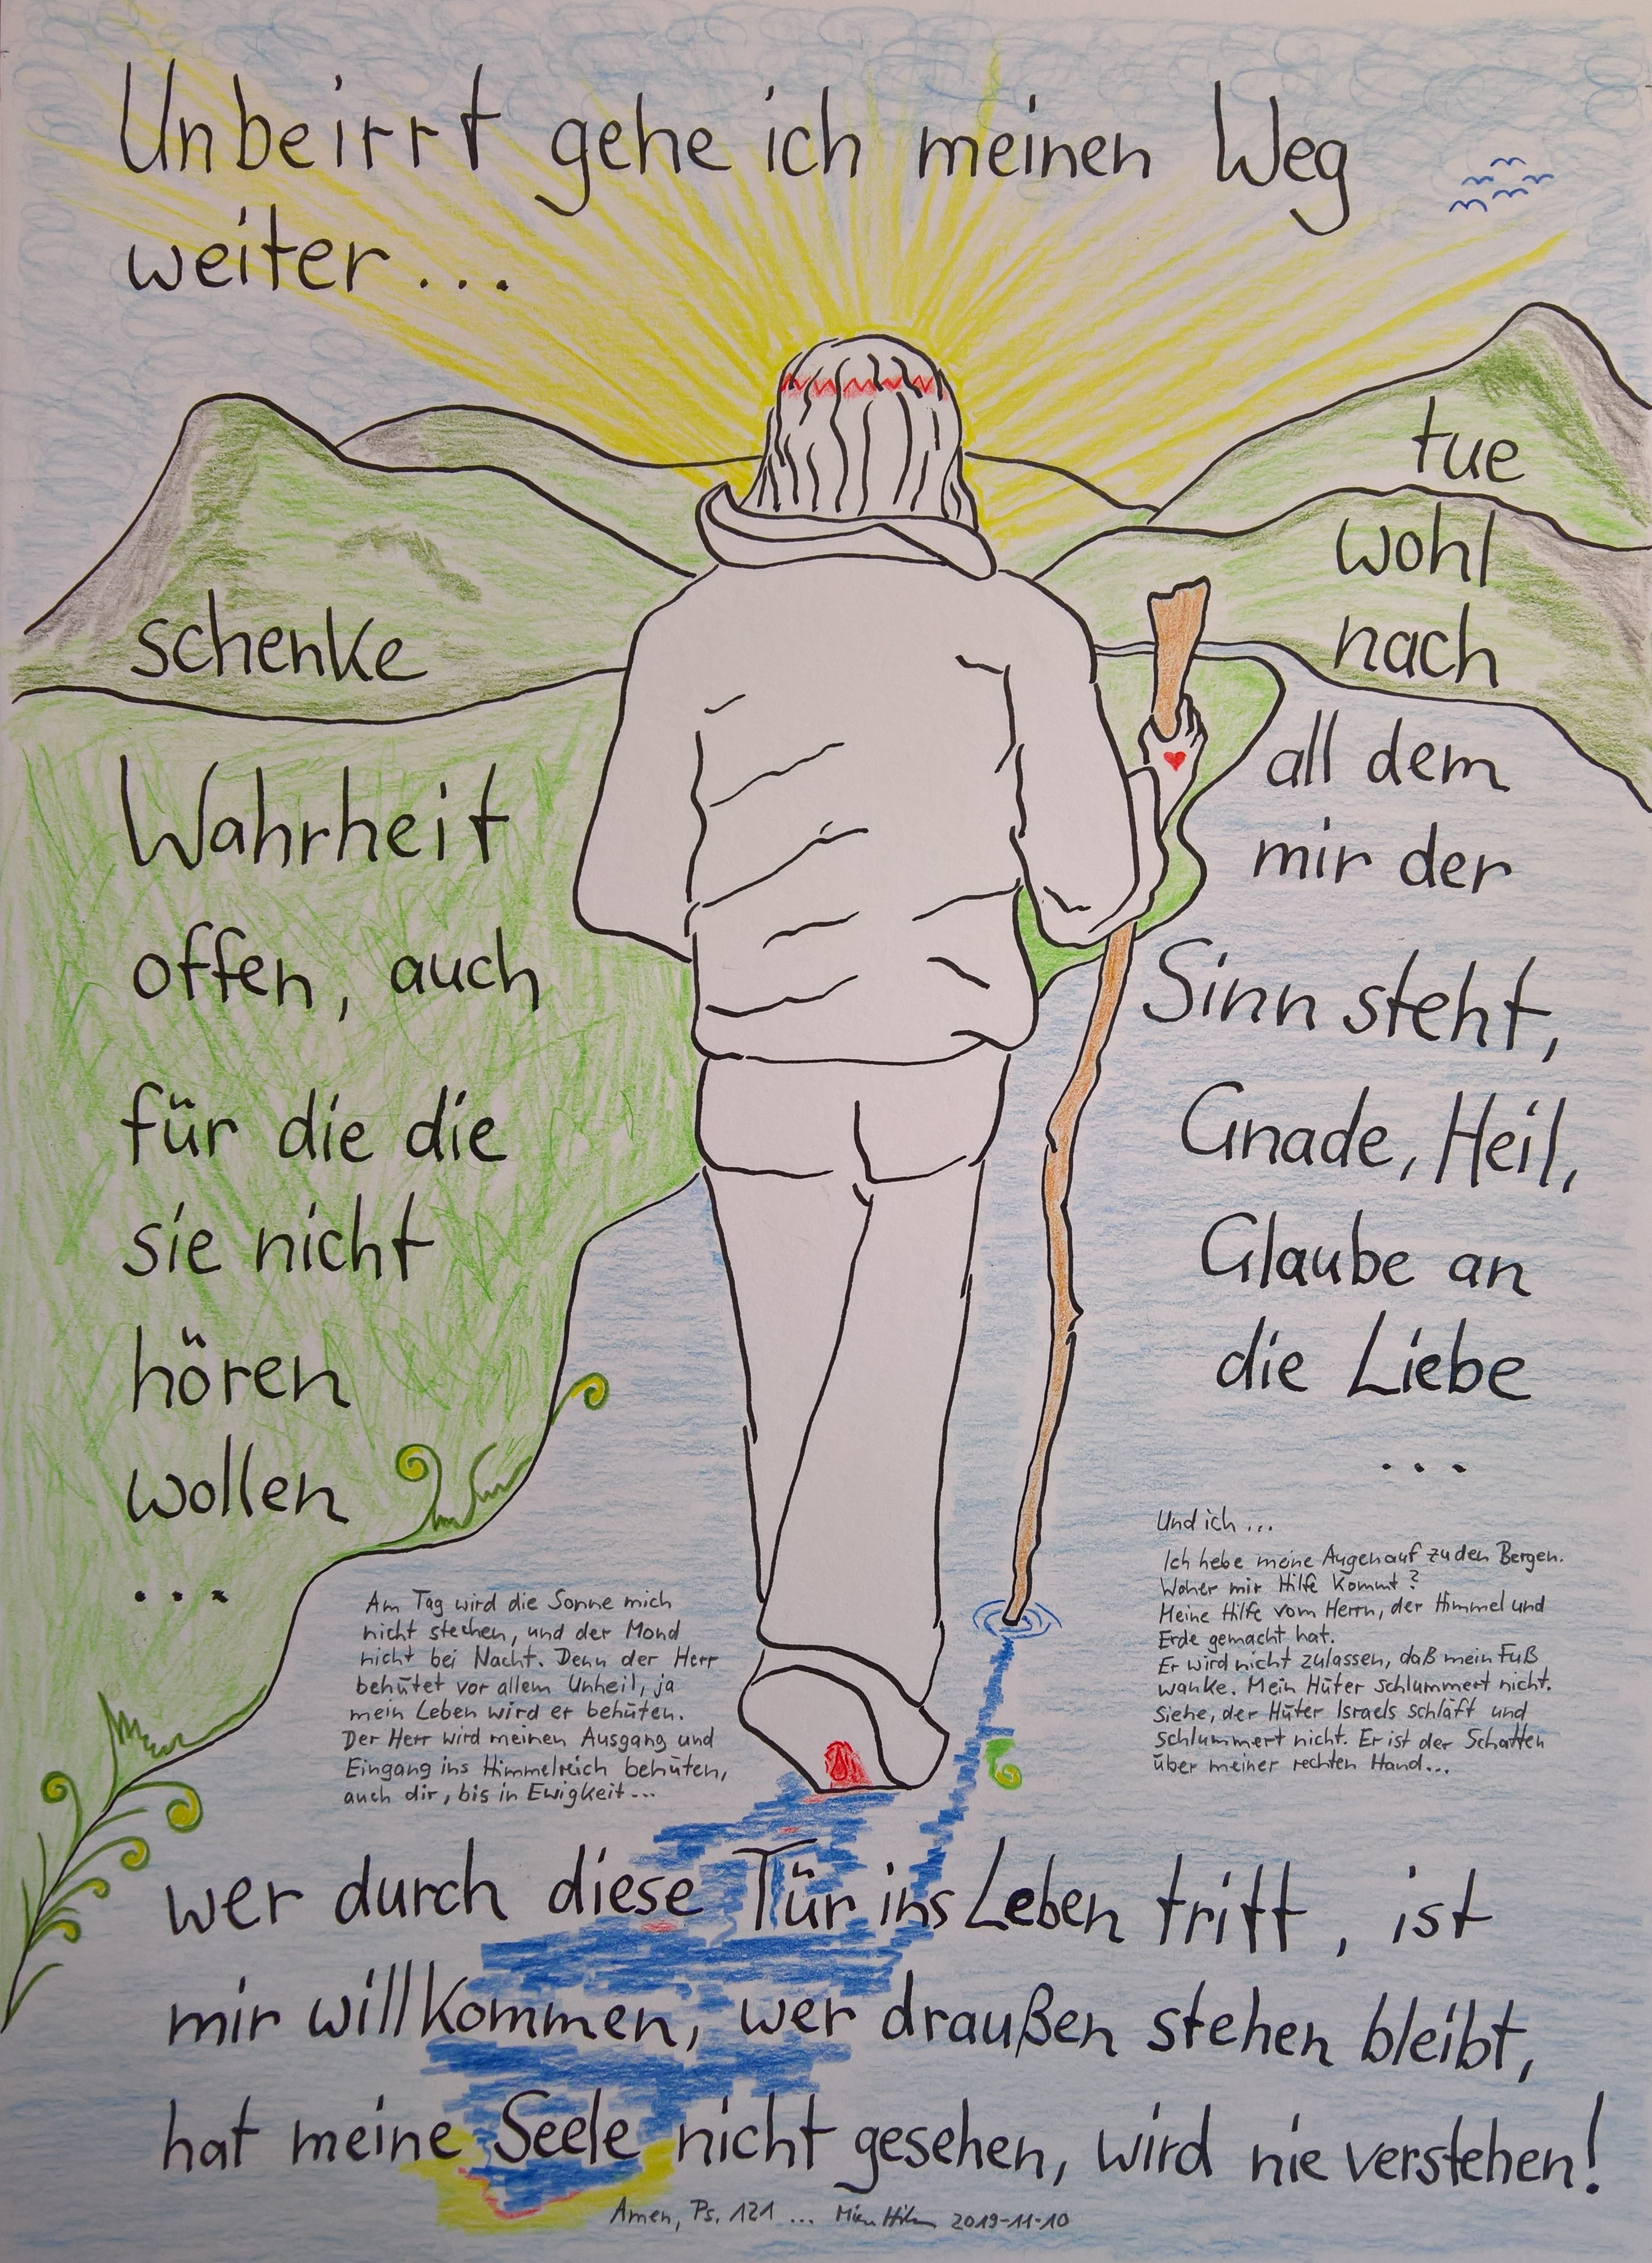 Unbeirrt gehe ich meinen Weg
weiter...
schenke
Wahrheit
offen, auch
für die die
sie nicht
hören
wollen
...
tue
wohl
nach
all dem
mir der
Sinn steht,
Gnade, Heil,
Glaube an
die Liebe
...
Und ich ...
Ich hebe meine Augen auf zu den Bergen.
Woher mir Hilfe kommt?
Meine Hilfe vom Herrn, der Himmel und
Erde gemacht hat.
Er wird nicht zulassen, daß mein Fuß
wanke. Mein Hüter schlummert nicht.
Siehe, der Hüter Israels schläft und
schlummert nicht. Er ist der Schatten
über meiner rechten Hand...
Am Tag wird die Sonne mich
nicht stechen, und der Mond
nicht bei Nacht. Denn der Herr
behütet vor allem Unheil, ja
mein Leben wird er behüten.
Der Herr wird meinen Ausgang und
Eingang ins Himmelreich behüten,
auch dir, bis in Ewigkeit...
wer durch diese Tür ins Leben tritt, ist
mir willkommen, wer draußen stehen bleibt,
hat meine Seele nicht gesehen, wird nie verstehen!
Amen, Ps. 121 ... 2019-11-10